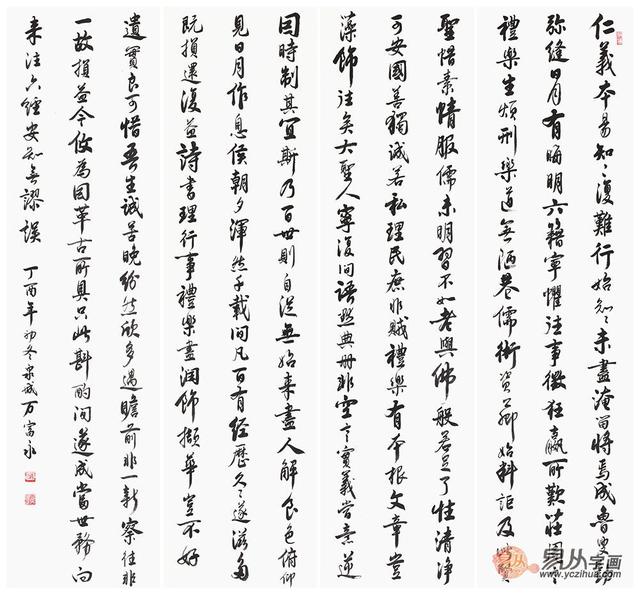 仁義本易知知復難行始知知未盡淹留將焉成魯叟勤
弥縫日月有晦明六籍寧懼往事徵狂嬴所歎莊周
禮樂生煩刑樂道無陋巷儒術資卿始料詎及
聖惜素情服儒未明習不如老與佛般若豈了性清淨
可安國善獨誠若私理民庶非賊禮樂有本根文章豈
藻飾往矣大聖人寧復問語默典冊非空言實義嘗意逆
因時制其宜斯乃百世則自從無始来盡人解食色俯仰
見日月作息俟朝夕渾然千載間凡百有經歷久之遂滋多
既損還復益詩書理行事禮樂盡潤飾擷華豈不好
遺實良可惜吾生誠苦晚紛然欣多遇瞻前非一新察往非
一故損益令攸為因革古所具只此斟酌間遂成當世務向
来注六經安知無謬誤 丁酉年初冬泉城万富永
易从字画
www.yczihua.com